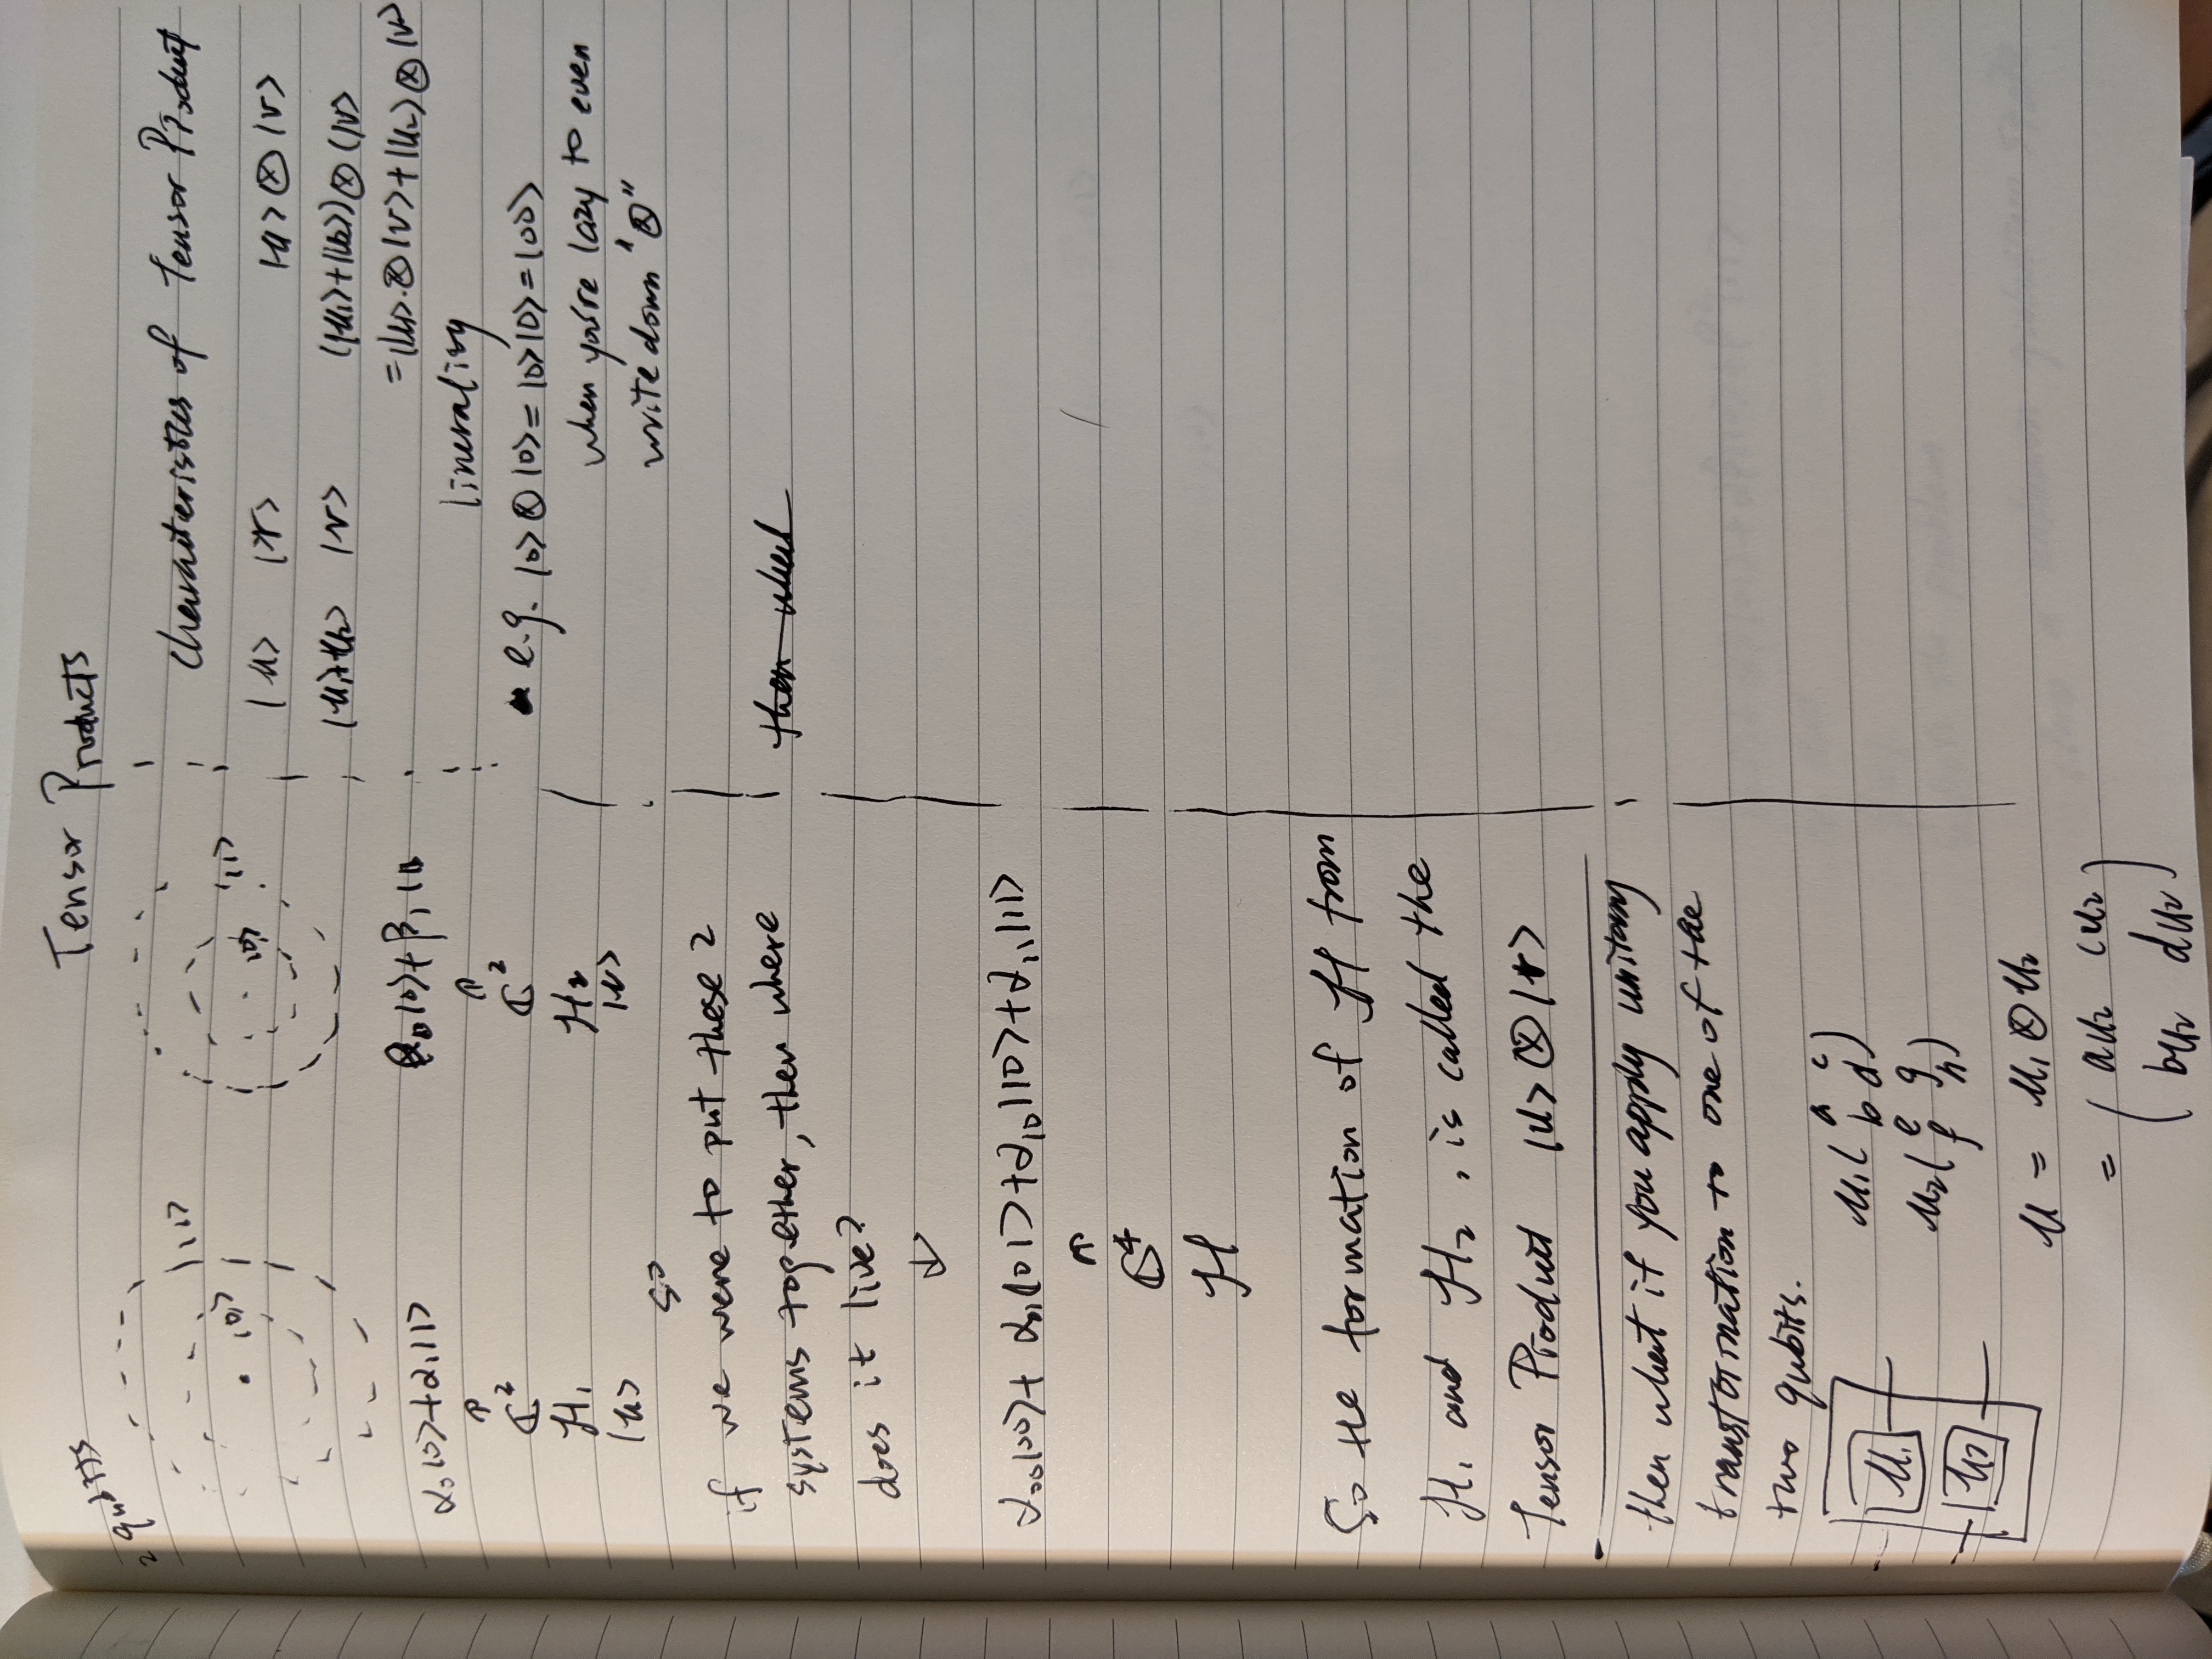 Tensor Products
2 qubits
|1>
|0>
|0>
|1>
α₀|0>+α₁|1>
β₀|0>+β₁|1
ℂ²
ℂ²
H₁
H₂
|u>
|v>
so
if we were to put these 2
systems together, then where
does it live?
↓
α₀₀|00>+ α₀₁|01>+α₁₀|10>+α₁₁|11>
ℂ⁴
H
So the formation of H from
H₁ and H₂, is called the
Tensor Product |u>⊗|v>
then what if you apply unitary
transformation to one of the
two qubits.
U₁
U₂
U₁( a c
b d)
U₂( e g
f h)
U = U₁⊗U₂
= ( aU₂ cU₂
bU₂ dU₂)
characteristics of Tensor Product
|u> |v> |u>⊗|v>
|u₁+u₂> |v> (|u₁>+|u₂>)⊗(|v>
=|u₁>⊗|v>+|u₂>⊗|v>
e.g. |0>⊗|0>=|0>|0>=|00>
when you're lazy to even
write down "⊗"
then what